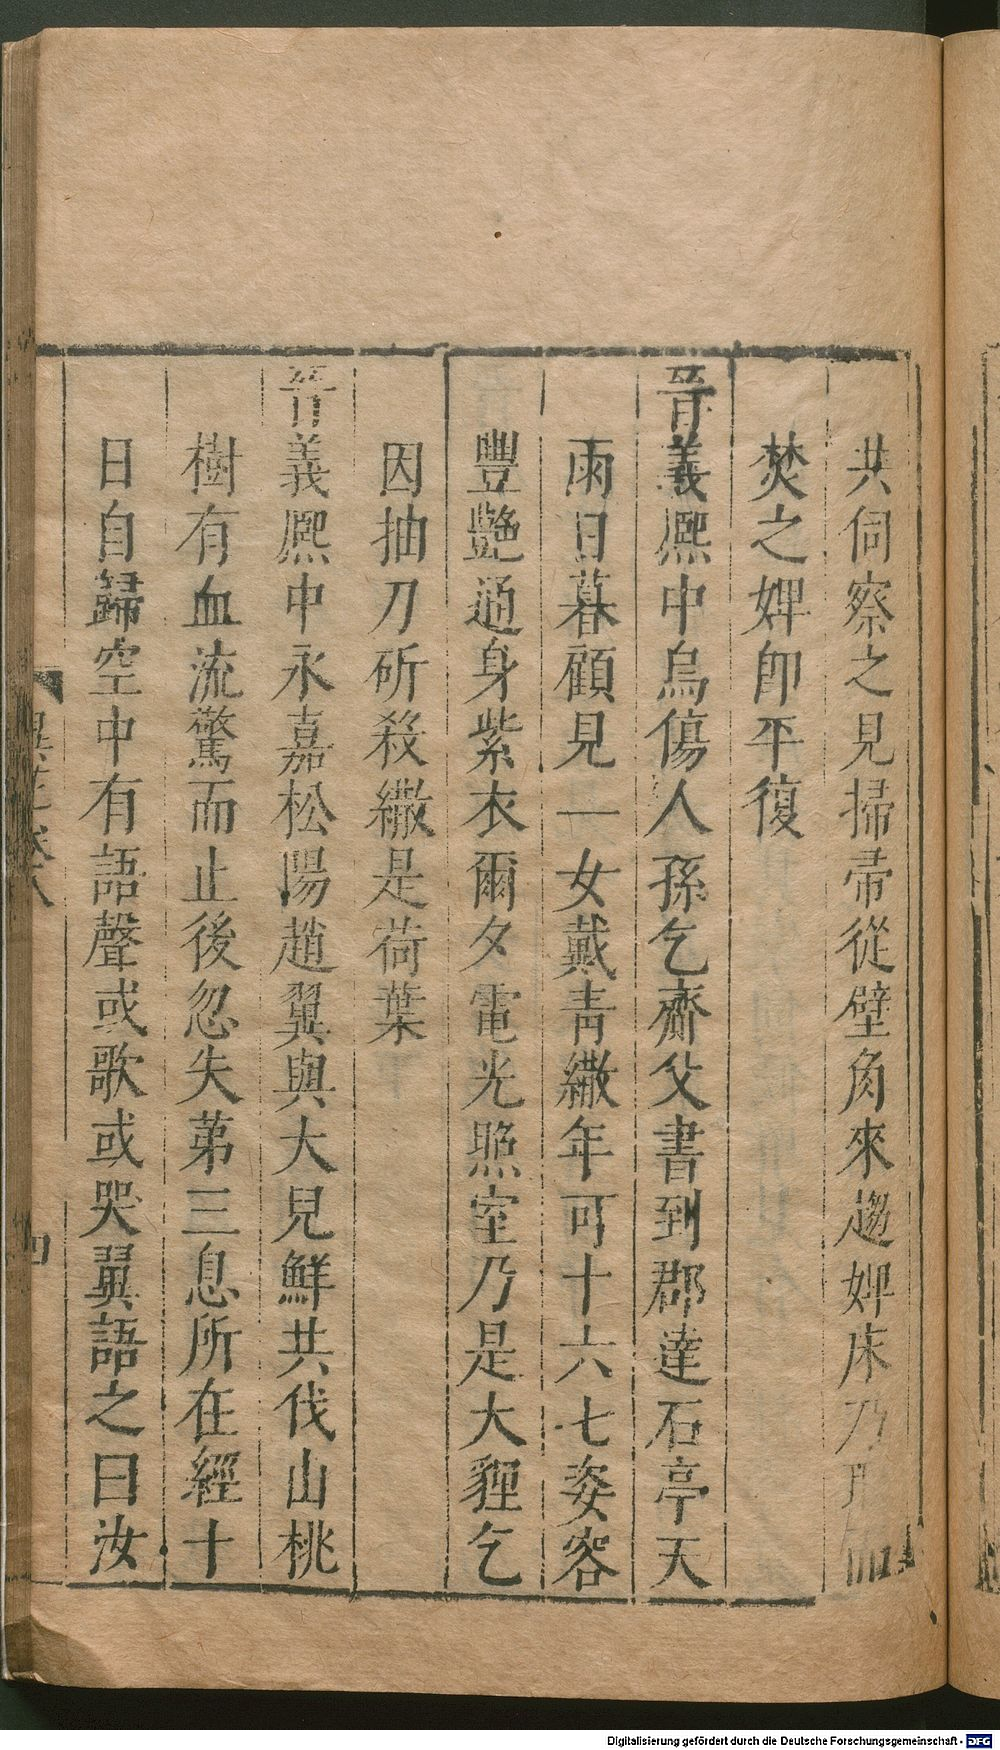 共伺察之見掃帚從壁角來趨婢床乃取而
焚之婢卽平復
晉義熈中烏傷人孫乞齎父書到郡達石亭天
雨日暮顧見一女戴靑繖年可十六七姿容
豐艶通身紫衣爾夕電光照室乃是大貍乞
因抽刀斫殺繖是荷葉
晉義熈中永嘉松陽趙翼與大兒鮮共伐山桃
樹有血流驚而止後忽失弟三息所在經十
日自歸空中有語聲或歌或哭翼語之曰汝
異苑卷八
四
Digitalisierung gefördert durch die Deutsche Forschungsgemeinschaft - DFG